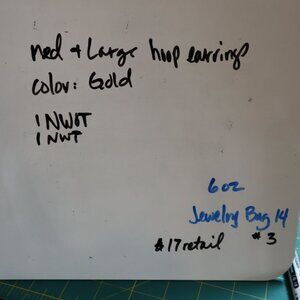 med + Large hoop earrings
color: Gold
1 NWOT
1 NWT
6 oz
Jewelry Bag 14
$17 retail
#3